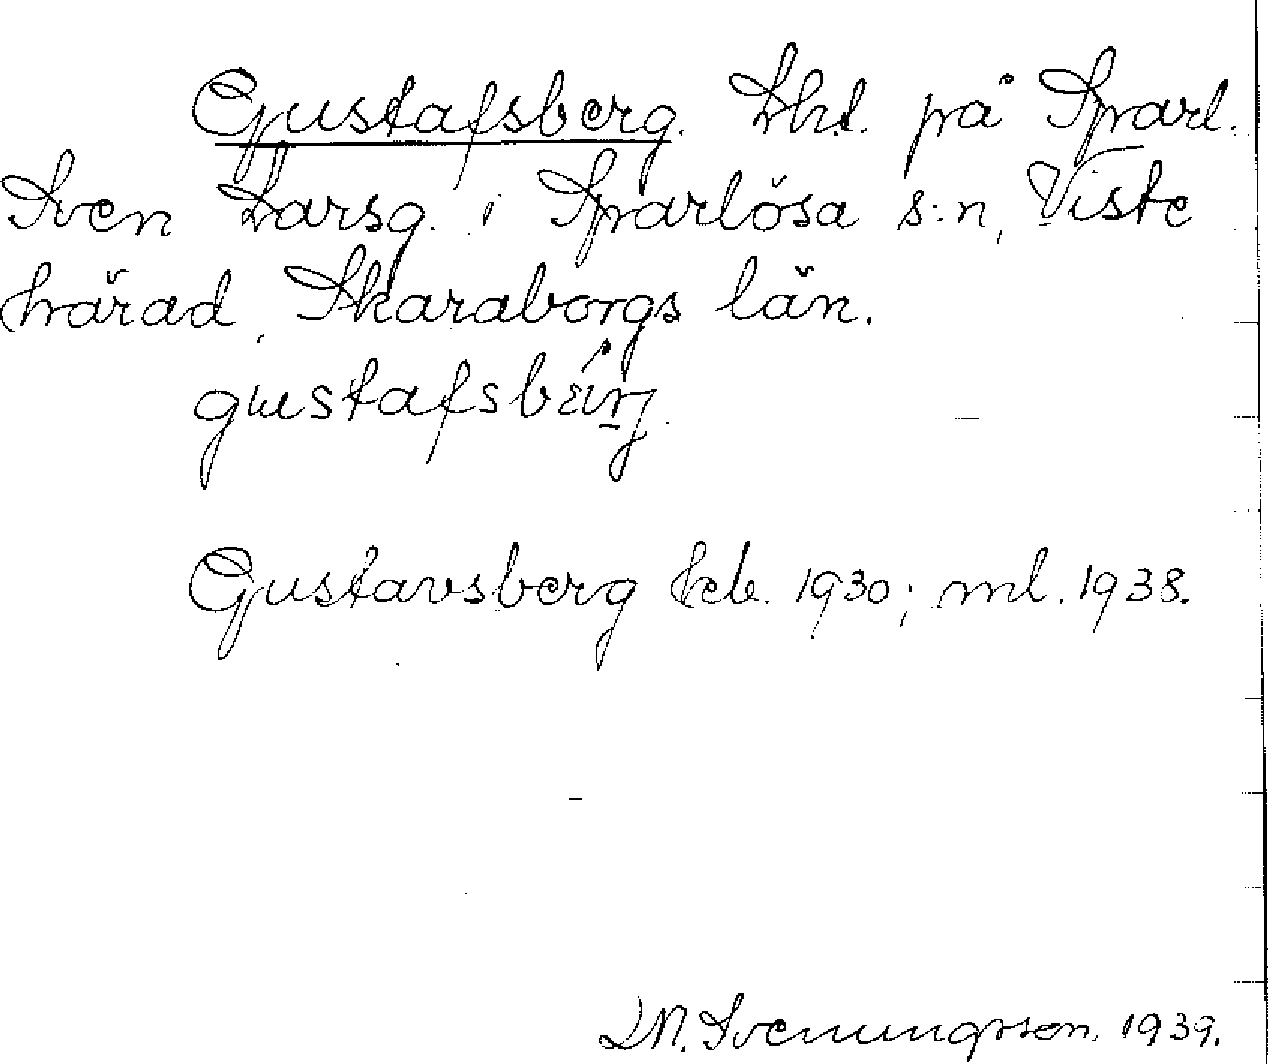 Gustafsberg. Lht. på Sparl.
Sven Larsg. i Sparlösa s:n, Viste
härad, Skaraborgs län.
gustafsbærj.
Gustavsberg kb. 1930; ml. 1938.
Svenungsson. 1939.